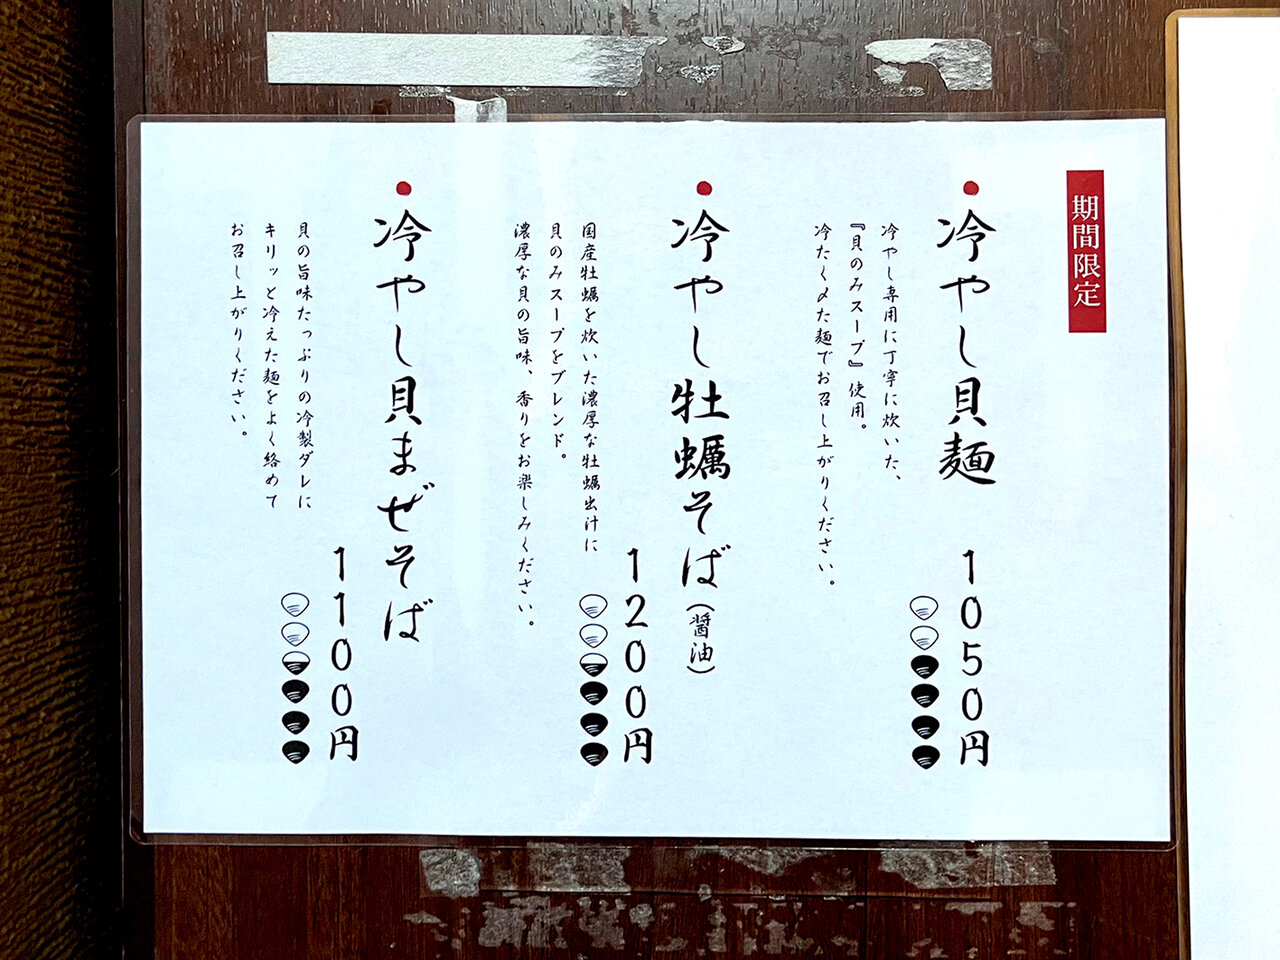 期間限定
冷やし貝麺
冷やし専用に丁寧に炊いた、
『貝のみスープ』使用。
冷たく〆た麺でお召し上がりください。
1050円
冷やし牡蠣そば(醤油)
国産牡蠣を炊いた濃厚な牡蠣出汁に
貝のみスープをブレンド。
濃厚な貝の旨味、香りをお楽しみください。
1200円
冷やし貝まぜそば
貝の旨味たっぷりの冷製ダレに
キリッと冷えた麺をよく絡めて
お召し上がりください。
1100円